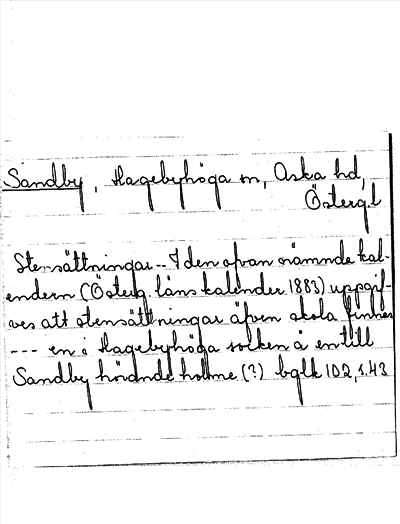 Sandby, Hagebyhöga sn, Aska hd,
Östergl
Stensättningar -- I den ofvan nämnda kal-
endern (Österg. läns kalender 1883) uppgif-
ves att stensättningar äfven skola finnas
--- en i Hagebyhöga socken å en till
Sandby hörande holme (?) bglk 102, s. 43